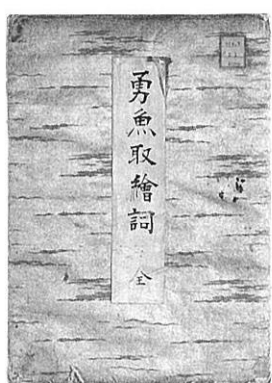 勇魚取繪詞 全